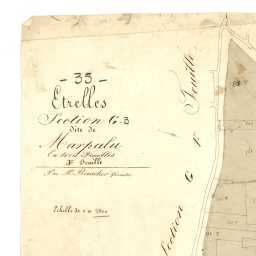 - 35 -
Etrelles
Section G-3
Dite de
Marpalu
En trois Feuilles
1e Feuille
Par Mr. géomètre
Echelle de 1 à 2500
Section G 1e Feuille